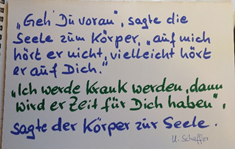 „Geh' Du voran", sagte die
Seele zum Körper, „auf mich
hört er nicht, vielleicht hört
er auf Dich."
„Ich werde krank werden, dann
wird er Zeit für Dich haben",
sagte der Körper zur Seele.
U. Schaffer